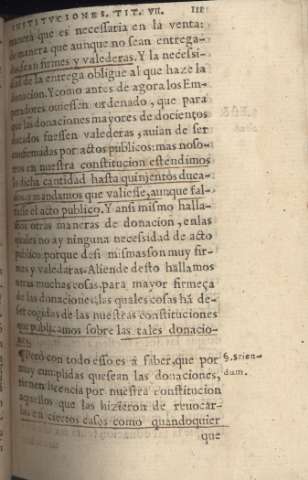 INSTITVCIONES. TIT. VII. III
manera que es necessaria en la venta:
de manera que aunque no sean entrega-
das sean firmes y valederas. Y la necessi-
dad de la entrega obligue al que haze la
donacion. Y como antes de agora los Em-
peradores ouiessen ordenado, que para
que las donaciones mayores de docientos
ducados fuessen valederas, auian de ser
confirmadas por actos publicos: mas noso-
tros en nuestra constitucion estendimos
la dicha cantidad hasta quinientos duca-
dos, y mandamos que valiesse, aunque fal-
tasse el acto publico. Y ansi mismo halla-
mos otras maneras de donacion, en las
quales no ay ninguna necessidad de acto
publico: porque de si mismas son muy fir-
mes y valederas. Aliende desto hallamos
otras muchas cosas, para mayor firmeça
de las donaciones, las quales cosas há de
ser cogidas de las nuestras constituciones
que publicamos sobre las tales donacio-
nes.
¶ Peró con todo esso es á saber, que por
muy cumplidas que sean las donaciones,
tienen licencia por nuestra constitucion
aquellos que las hizieron de reuocar-
las en ciertos casos como quandoquier
que
§. Scien-
dum.